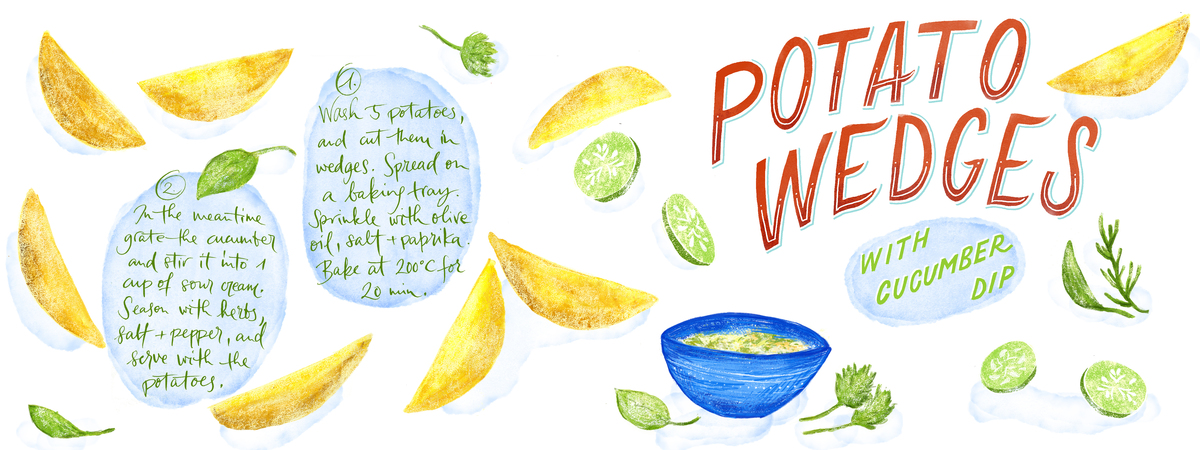 POTATO
WEDGES
WITH
CUCUMBER
DIP
1.
Wash 5 potatoes,
and cut them in
wedges. Spread on
a baking tray.
Sprinkle with olive
oil, salt + paprika.
Bake at 200°C for
20 min.
2
In the meantime
grate the cucumber
and stir it into 1
cup of sour cream.
Season with herbs,
salt + pepper, and
serve with the
potatoes.